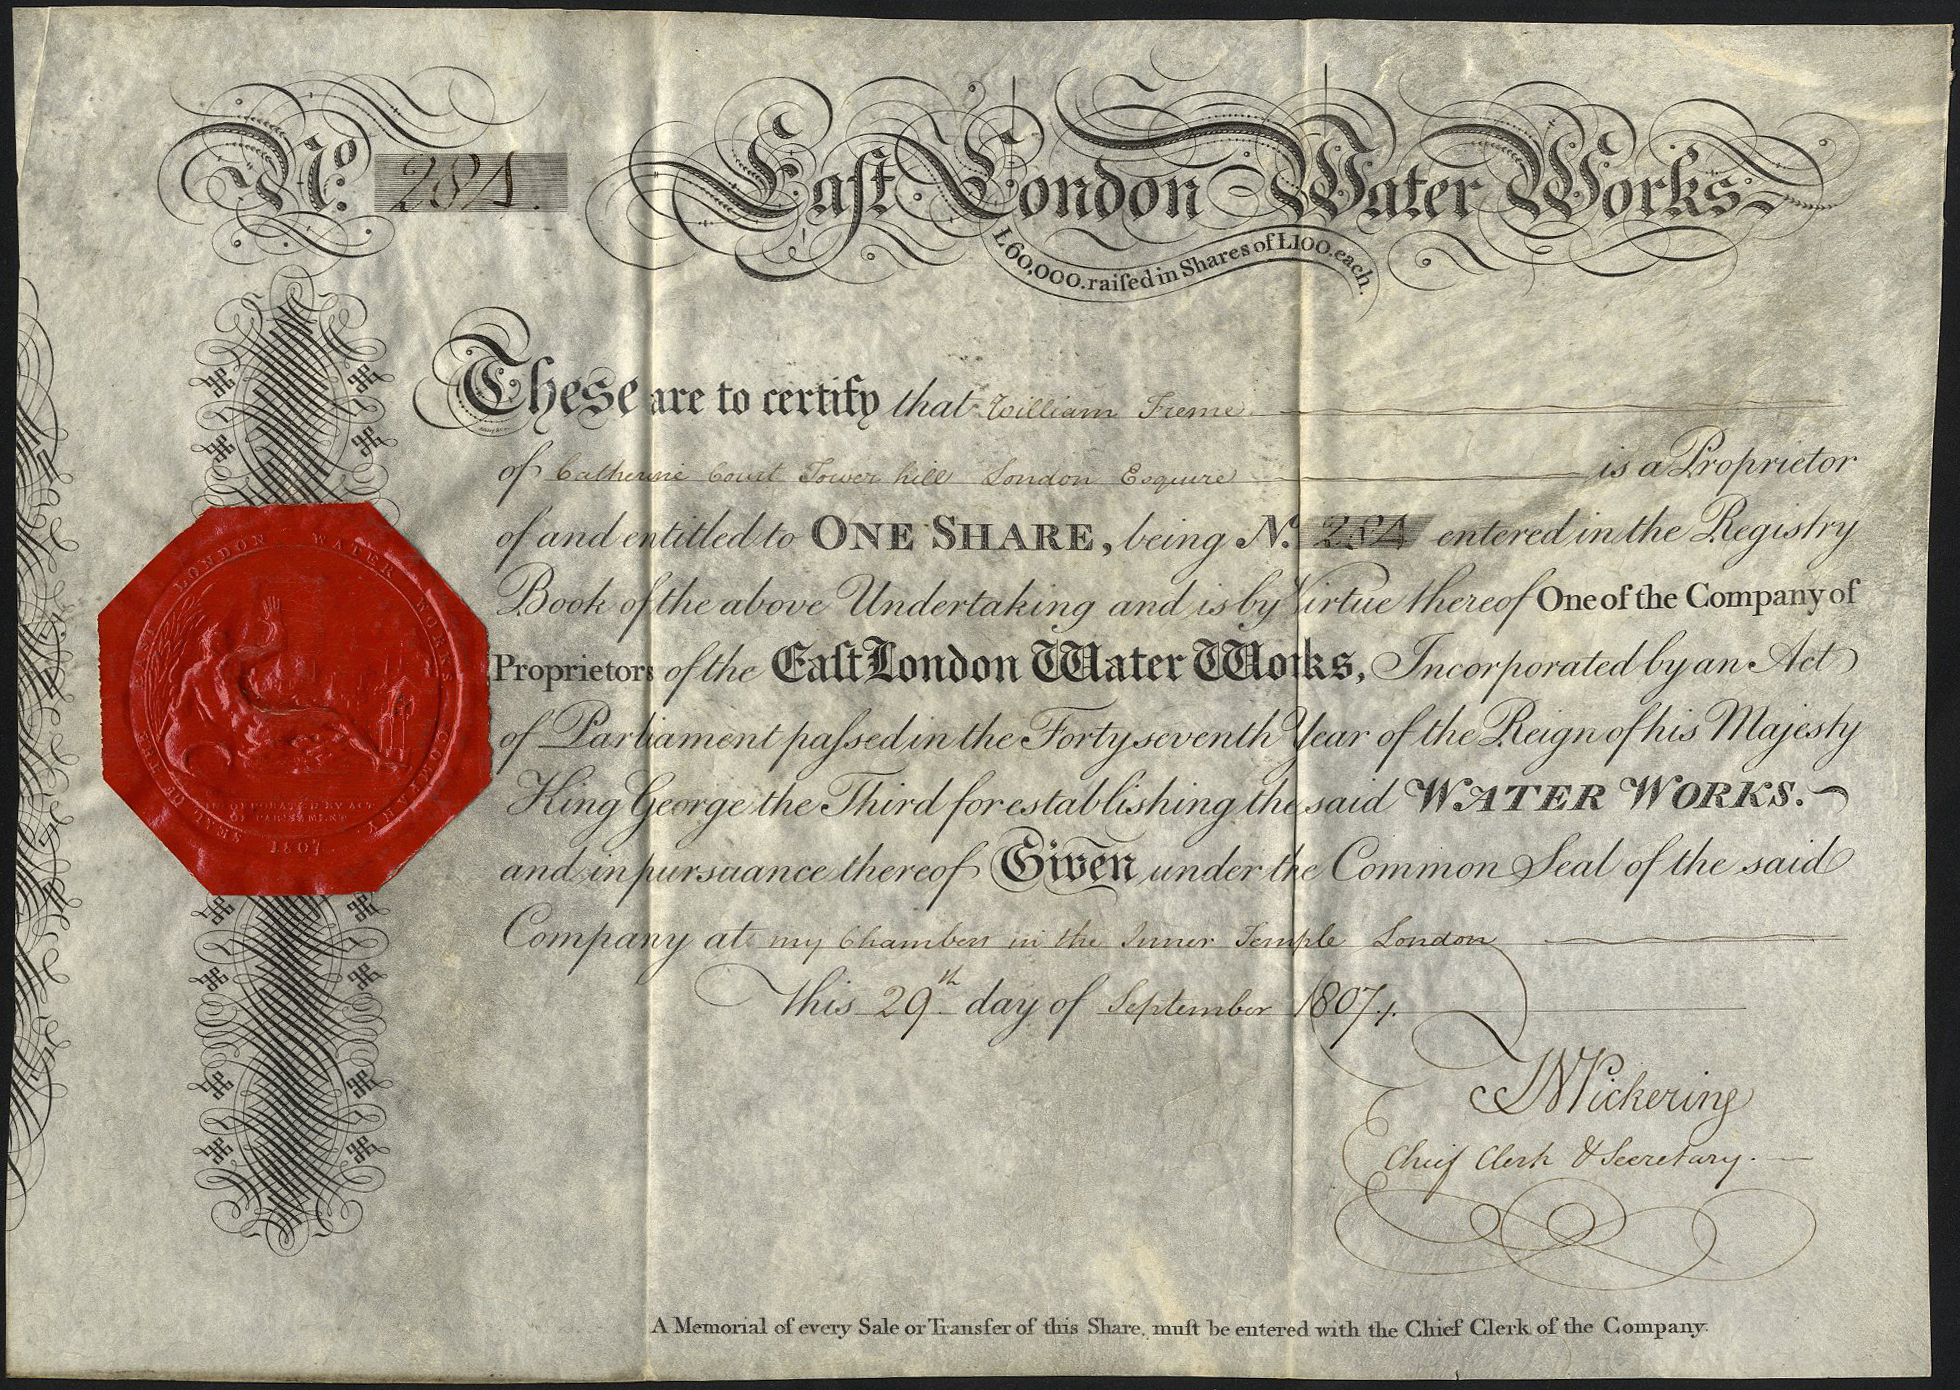 No. 284.
East London Water Works.
L60,000. raiſed in Shares of L100. each.
These are to certify that William Freme
of Catherine Court Tower hill London Esquire is a Proprietor
of and entitled to ONE SHARE, being No. 284 entered in the Registry
Book of the above Undertaking and is by Virtue thereof One of the Company of
Proprietors of the Eaſt London Water Works, Incorporated by an Act
of Parliament paſsed in the Forty seventh Year of the Reign of his Majesty
King George the Third for establishing the said WATER WORKS.
and in pursuance thereof Given under the Common Seal of the said
Company at my Chambers in the Inner Temple London
This 29th day of September 1807.
Pickering
Chief Clerk & Secretary.
A Memorial of every Sale or Transfer of this Share, muſt be entered with the Chief Clerk of the Company.
SEAL OF THE EAST LONDON WATER WORKS COMPANY.
INCORPORATED BY ACT
OF PARLIAMENT
1807.